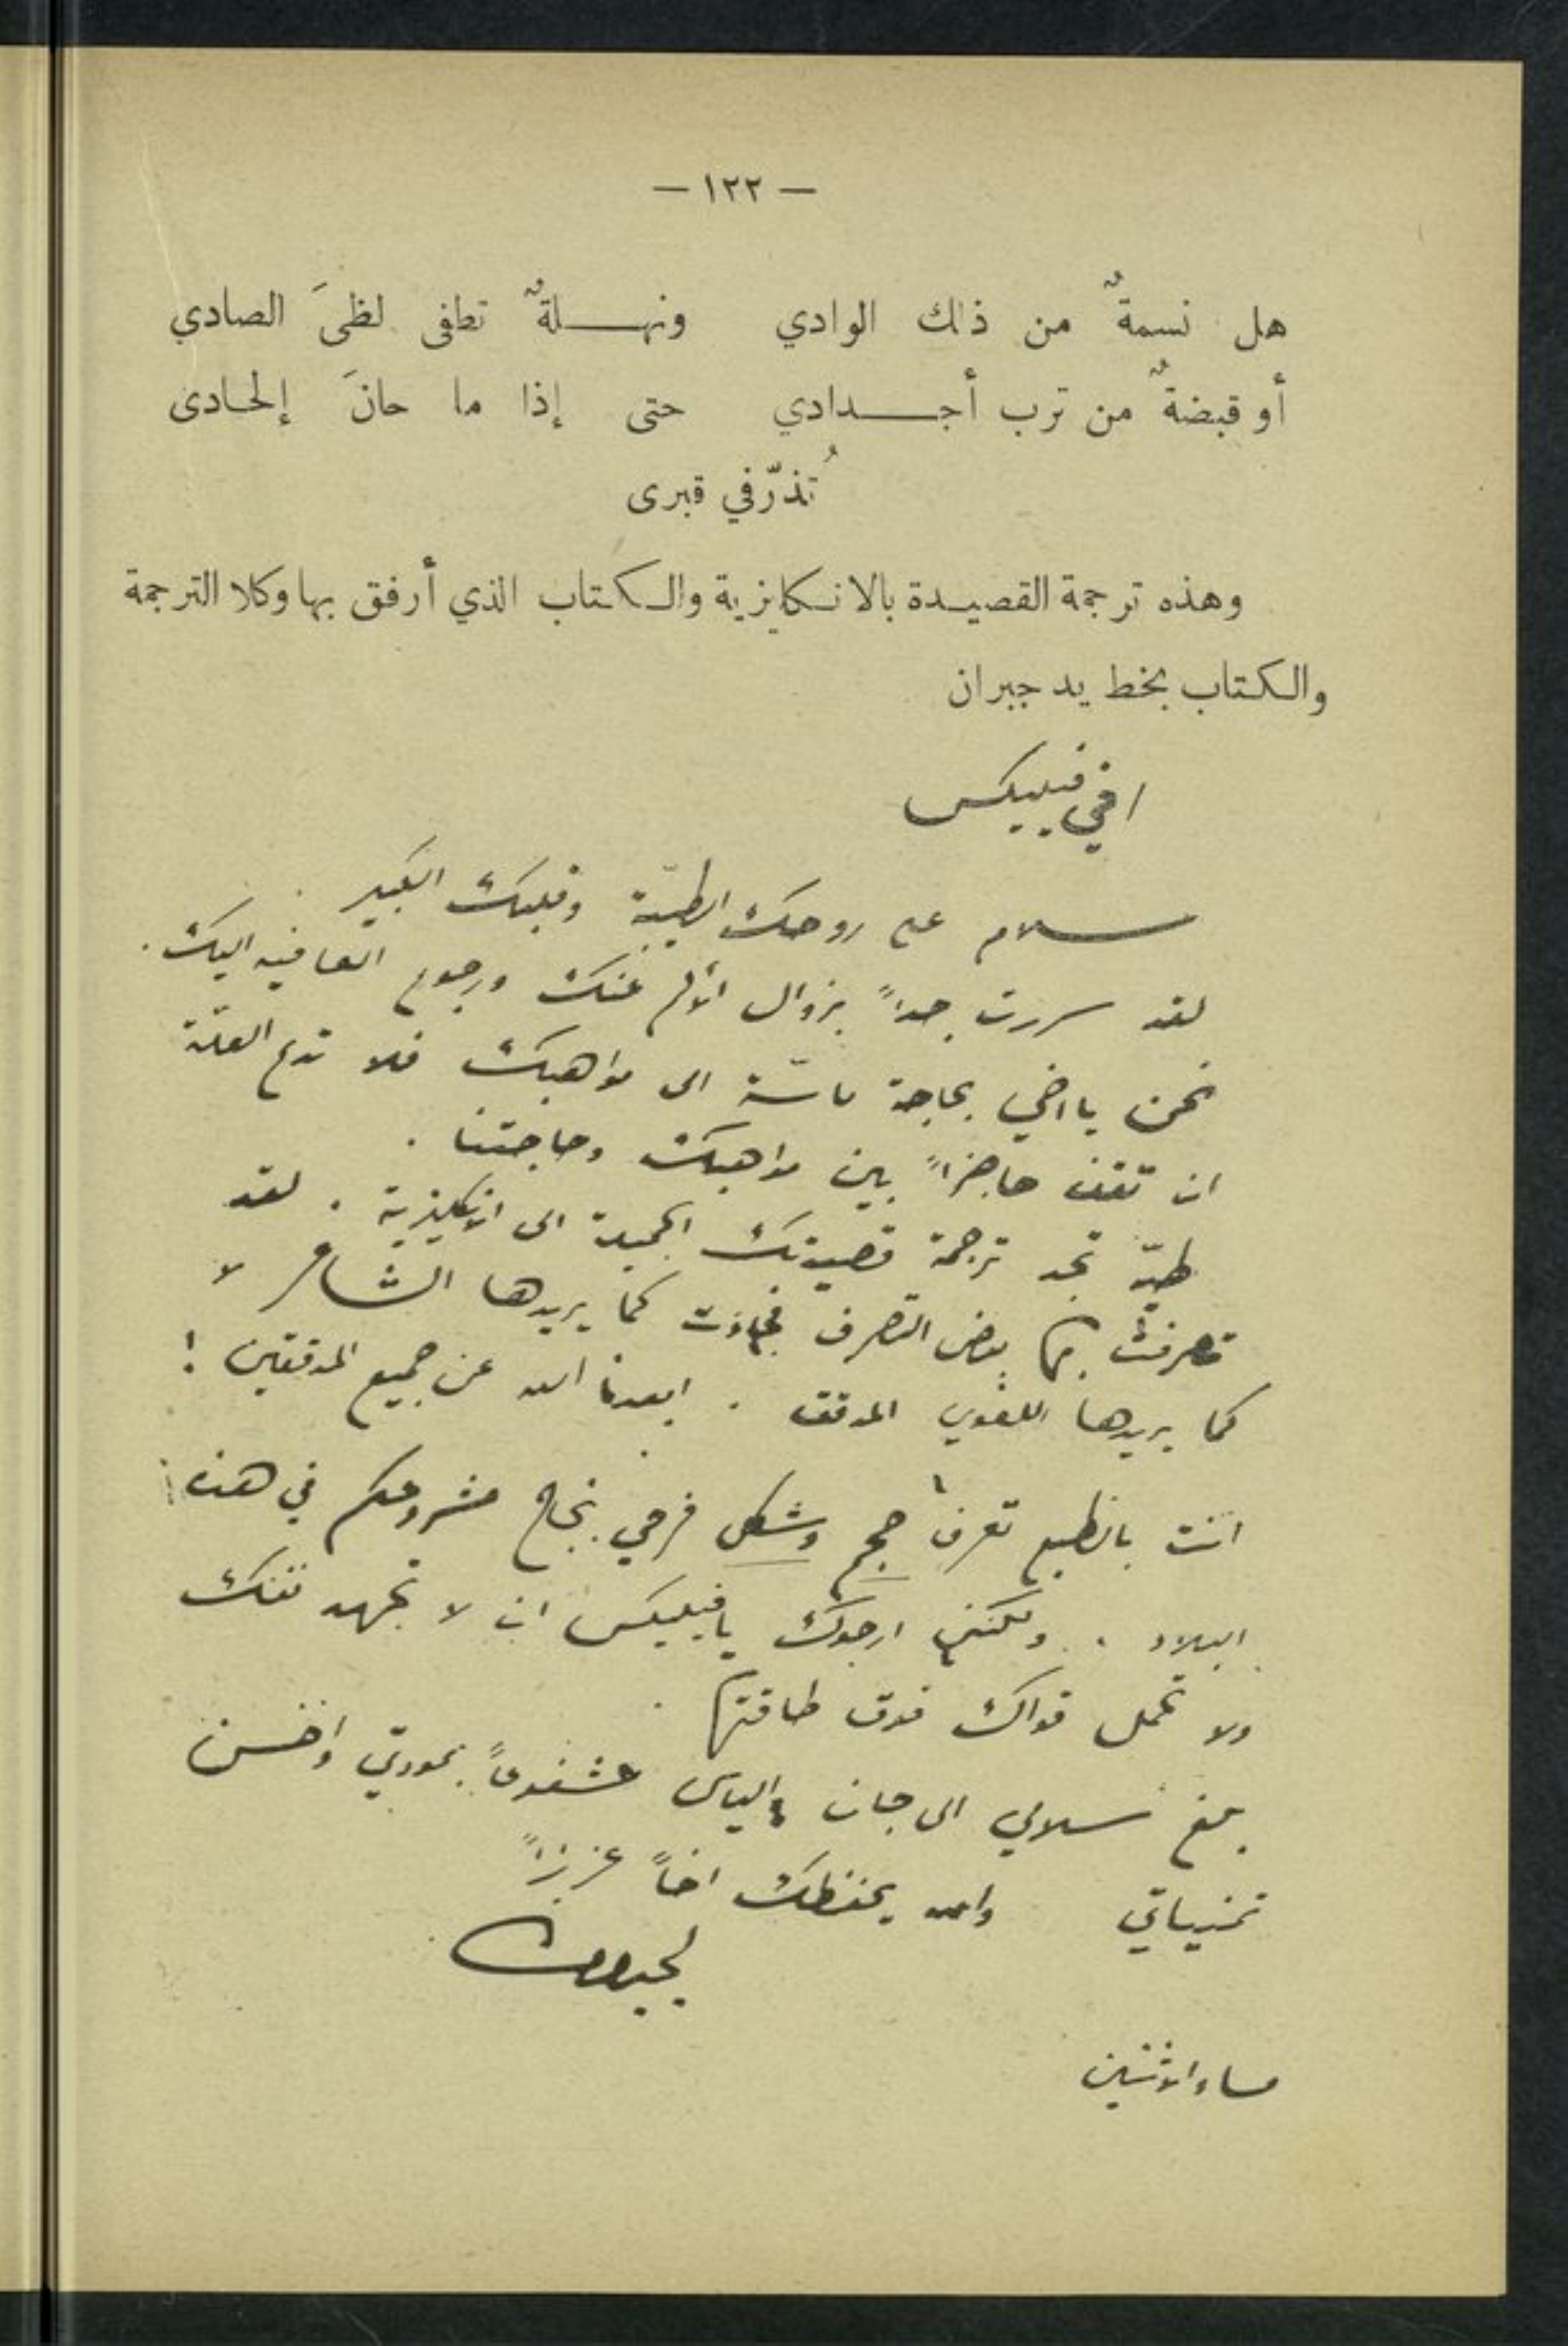 — ١٢٢ —
هل نسمةٌ من ذلك الوادي ونهـلةٌ تطفى لظىَ الصادي
أو قبضةٌ من ترب أجـدادي حتى إذا ما حانَ إلحادى
تُذرّ في قبرى
وهذه ترجمة القصيدة بالانكليزية والكتاب الذي أرفق بها وكلا الترجمة
والكتاب بخط يد جبران
اخي فيليكس
سلام على روحك الطيّبة وقلبك الكبير .
لقد سررت جداً بزوال الألم عنك ورجوع العافيه اليك .
نحن يا اخي بحاجة ماسّة الى مواهبك فلا تدع العلّة
ان تقف حاجزاً بين مواهبك وحاجتنا .
طيّه تجد ترجمة قصيدتك الجميلة الى الانكليزية . لقد
تصرفت بها بعض التصرف فجاءت كما يريدها الشاعر لا
كما يريدها اللغوي المدقق . ابعدنا الله عن جميع المدققين !
انت بالطبع تعرف حجم وشكل فرحي بنجاح مشروعكم في هذه
البلاد . ولكنني ارجوك يا فيليكس ان لا تجهد نفسك
ولا تحمل قواك فوق طاقتها .
بلغ سلامي الى جان والياس مشفوعاً بمودتي واحسن
تمنياتي والله يحفظك اخاً عزيزاً
لجبران
مساء الاثنين